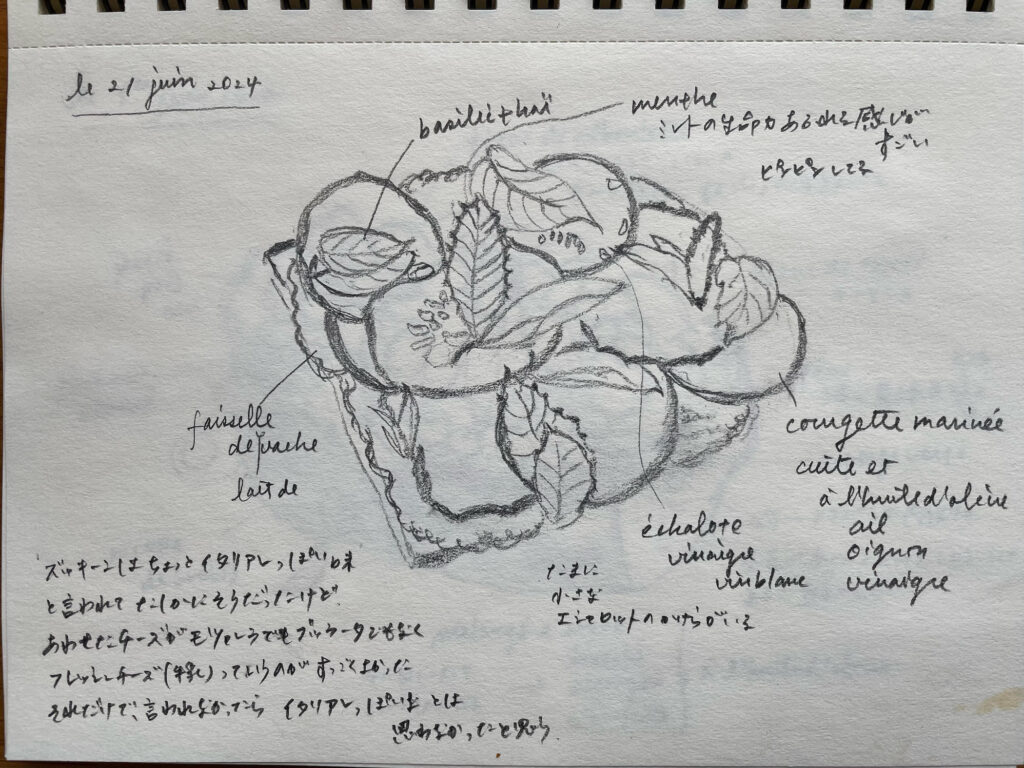 le 21 juin 2024
basilic thaï
menthe
ミントの生命力あふれる感じが
すごい
ピンピンしてる
faisselle
de vache
lait de
courgette marinée
cuite et
à l'huile d'olive
ail
oignon
vinaigre
échalote
vinaigre
vin blanc
たまに
小さな
エシャロットのかけらがいる
ズッキーニはちょっとイタリアンっぽい味
と言われて たしかにそうだったけど
あわせたチーズがモツァレラでもブッラータでもなく
フレッシュチーズ(牛乳)っていうのがすっごくよかった
それだけで、言われなかったら イタリアンっぽいなとは
思わなかったと思う